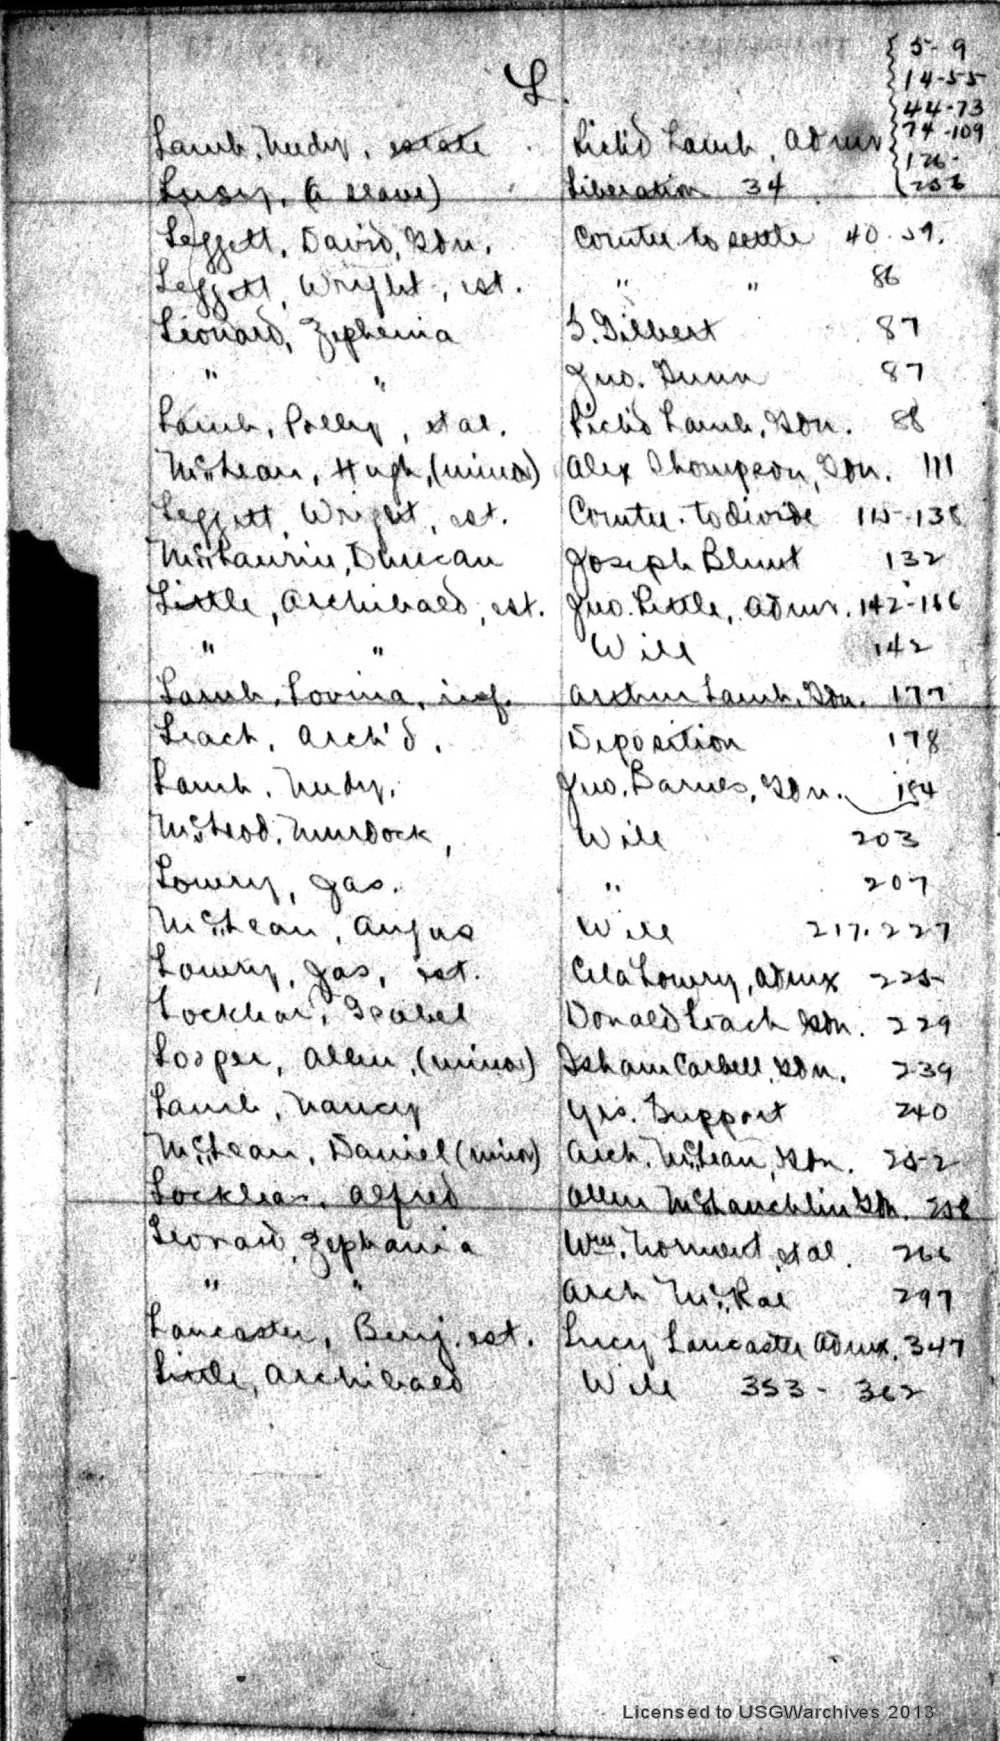 L.
5-9
14-55
44-73
74-109
126-
256
Lamb, Needy, estate Rich'd Lamb, Admr
Lucy, (a slave) Liberation 34
Leggett, David, Gdn. Comtee to settle 40-59.
Leggett, Wright, est. " " 86
Leonard, Zephenia S. Gilbert 87
" " Jno. Gunn 87
Lamb, Polly, et al. Rich'd Lamb, Gdn. 88
McLean, Hugh, (minor) Alex Thompson, Gdn. 111
Leggett, Wright, est. Comtee. to divide 115-138
McLaurin, Duncan Joseph Blunt 132
Little, Archibald, est. Jno. Little, Admr. 142-166
" " Will 142
Lamb, Lovina, inf. Arthur Lamb, Gdn. 177
Leach, Arch'd. Deposition 178
Lamb, Needy, Jno. Barnes, Gdn. 184
McLeod, Murdock, Will 203
Lowry, Jas. " 207
McLean, Angus Will 217-227
Lowry, Jas, est. Cela Lowry, Admx 225
Locklear, Isabel Donald Leach Gdn. 229
Looper, Allen, (minor) Isham Carbell, Gdn. 239
Lamb, Nancy Yrs. Support 240
McLean, Daniel (minor) Arch. McLean, Gdn. 252
Locklear, Alfred Allen McLauchlin Gdn. 258
Leonard, Zephania Wm. Norment, et al. 266
" " Arch McRae 297
Lancaster, Benj. est. Lucy Lancaster Admx. 347
Little, Archibald Will 353-362
Licensed to USGWarchives 2013